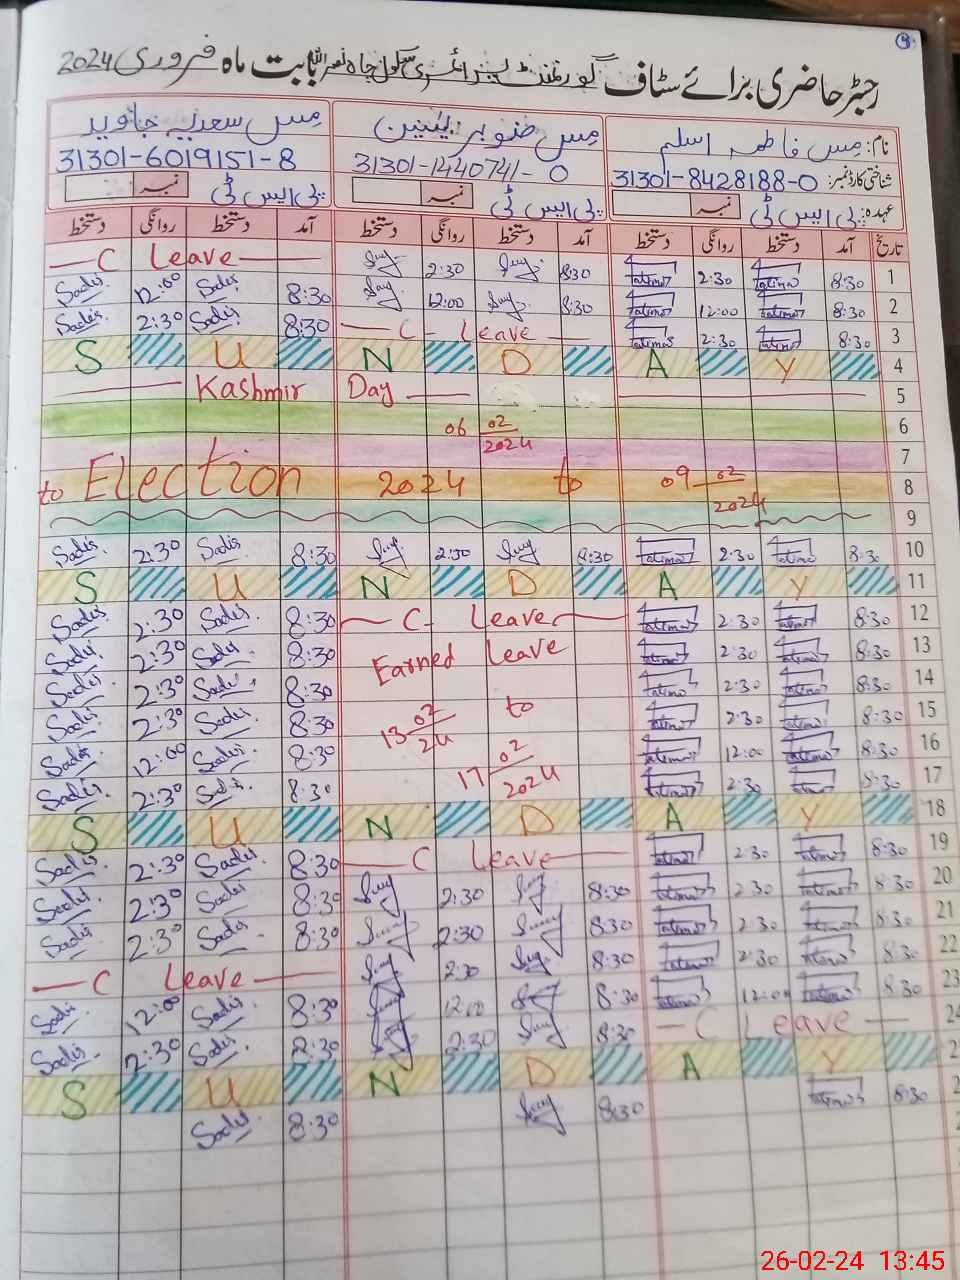 رجسٹر حاضری برائے سٹاف گورنمنٹ پرائمری سکول چاہ نصراللہ بابت ماہ فروری 2024
نام: مس فاطمہ اسلم مس صنوبر یٰسین مس سعدیہ جاوید
شناختی کارڈ نمبر: 31301-8428188-0 31301-1440741-0 31301-6019151-8
عہدہ: پی ایس ٹی نمبر پی ایس ٹی نمبر پی ایس ٹی نمبر
تاریخ آمد دستخط روانگی دستخط آمد دستخط روانگی دستخط آمد دستخط روانگی دستخط
1 8:30 Fatima 2:30 Fatima 8:30 2:30 C Leave
2 8:30 Fatima 12:00 Fatima 8:30 12:00 8:30 Sadis 12:00 Sadis
3 8:30 Fatima 2:30 Fatima C Leave 8:30 Sadis 2:30 Sadis
4 S U N D A Y
5 Kashmir Day
6 06 02/2024
7
8 to Election 2024 to 09 02/2024
9
10 8:30 Fatima 2:30 Fatima 8:30 2:30 8:30 Sadis 2:30 Sadis
11 S U N D A Y
12 8:30 Fatima 2:30 Fatima C Leave 8:30 Sadis 2:30 Sadis
13 8:30 Fatima 2:30 Fatima Earned Leave 8:30 Sadis 2:30 Sadis
14 8:30 Fatima 2:30 Fatima 8:30 Sadis 2:30 Sadis
15 8:30 Fatima 2:30 Fatima 13 02/24 to 8:30 Sadis 2:30 Sadis
16 8:30 Fatima 12:00 Fatima 8:30 Sadis 12:00 Sadis
17 8:30 Fatima 2:30 Fatima 17 02/2024 8:30 Sadis 2:30 Sadis
18 S U N D A Y
19 8:30 Fatima 2:30 Fatima C Leave 8:30 Sadis 2:30 Sadis
20 8:30 Fatima 2:30 Fatima 8:30 2:30 8:30 Sadis 2:30 Sadis
21 8:30 Fatima 2:30 Fatima 8:30 2:30 8:30 Sadis 2:30 Sadis
22 8:30 Fatima 2:30 Fatima 8:30 2:30 C Leave
23 8:30 Fatima 12:00 Fatima 8:30 12:00 8:30 Sadis 12:00 Sadis
C Leave 8:30 2:30 2:30 Sadis 2:30 Sadis
S U N D A Y
8:30 Fatima 8:30 8:30 Sadis
26-02-24 13:45